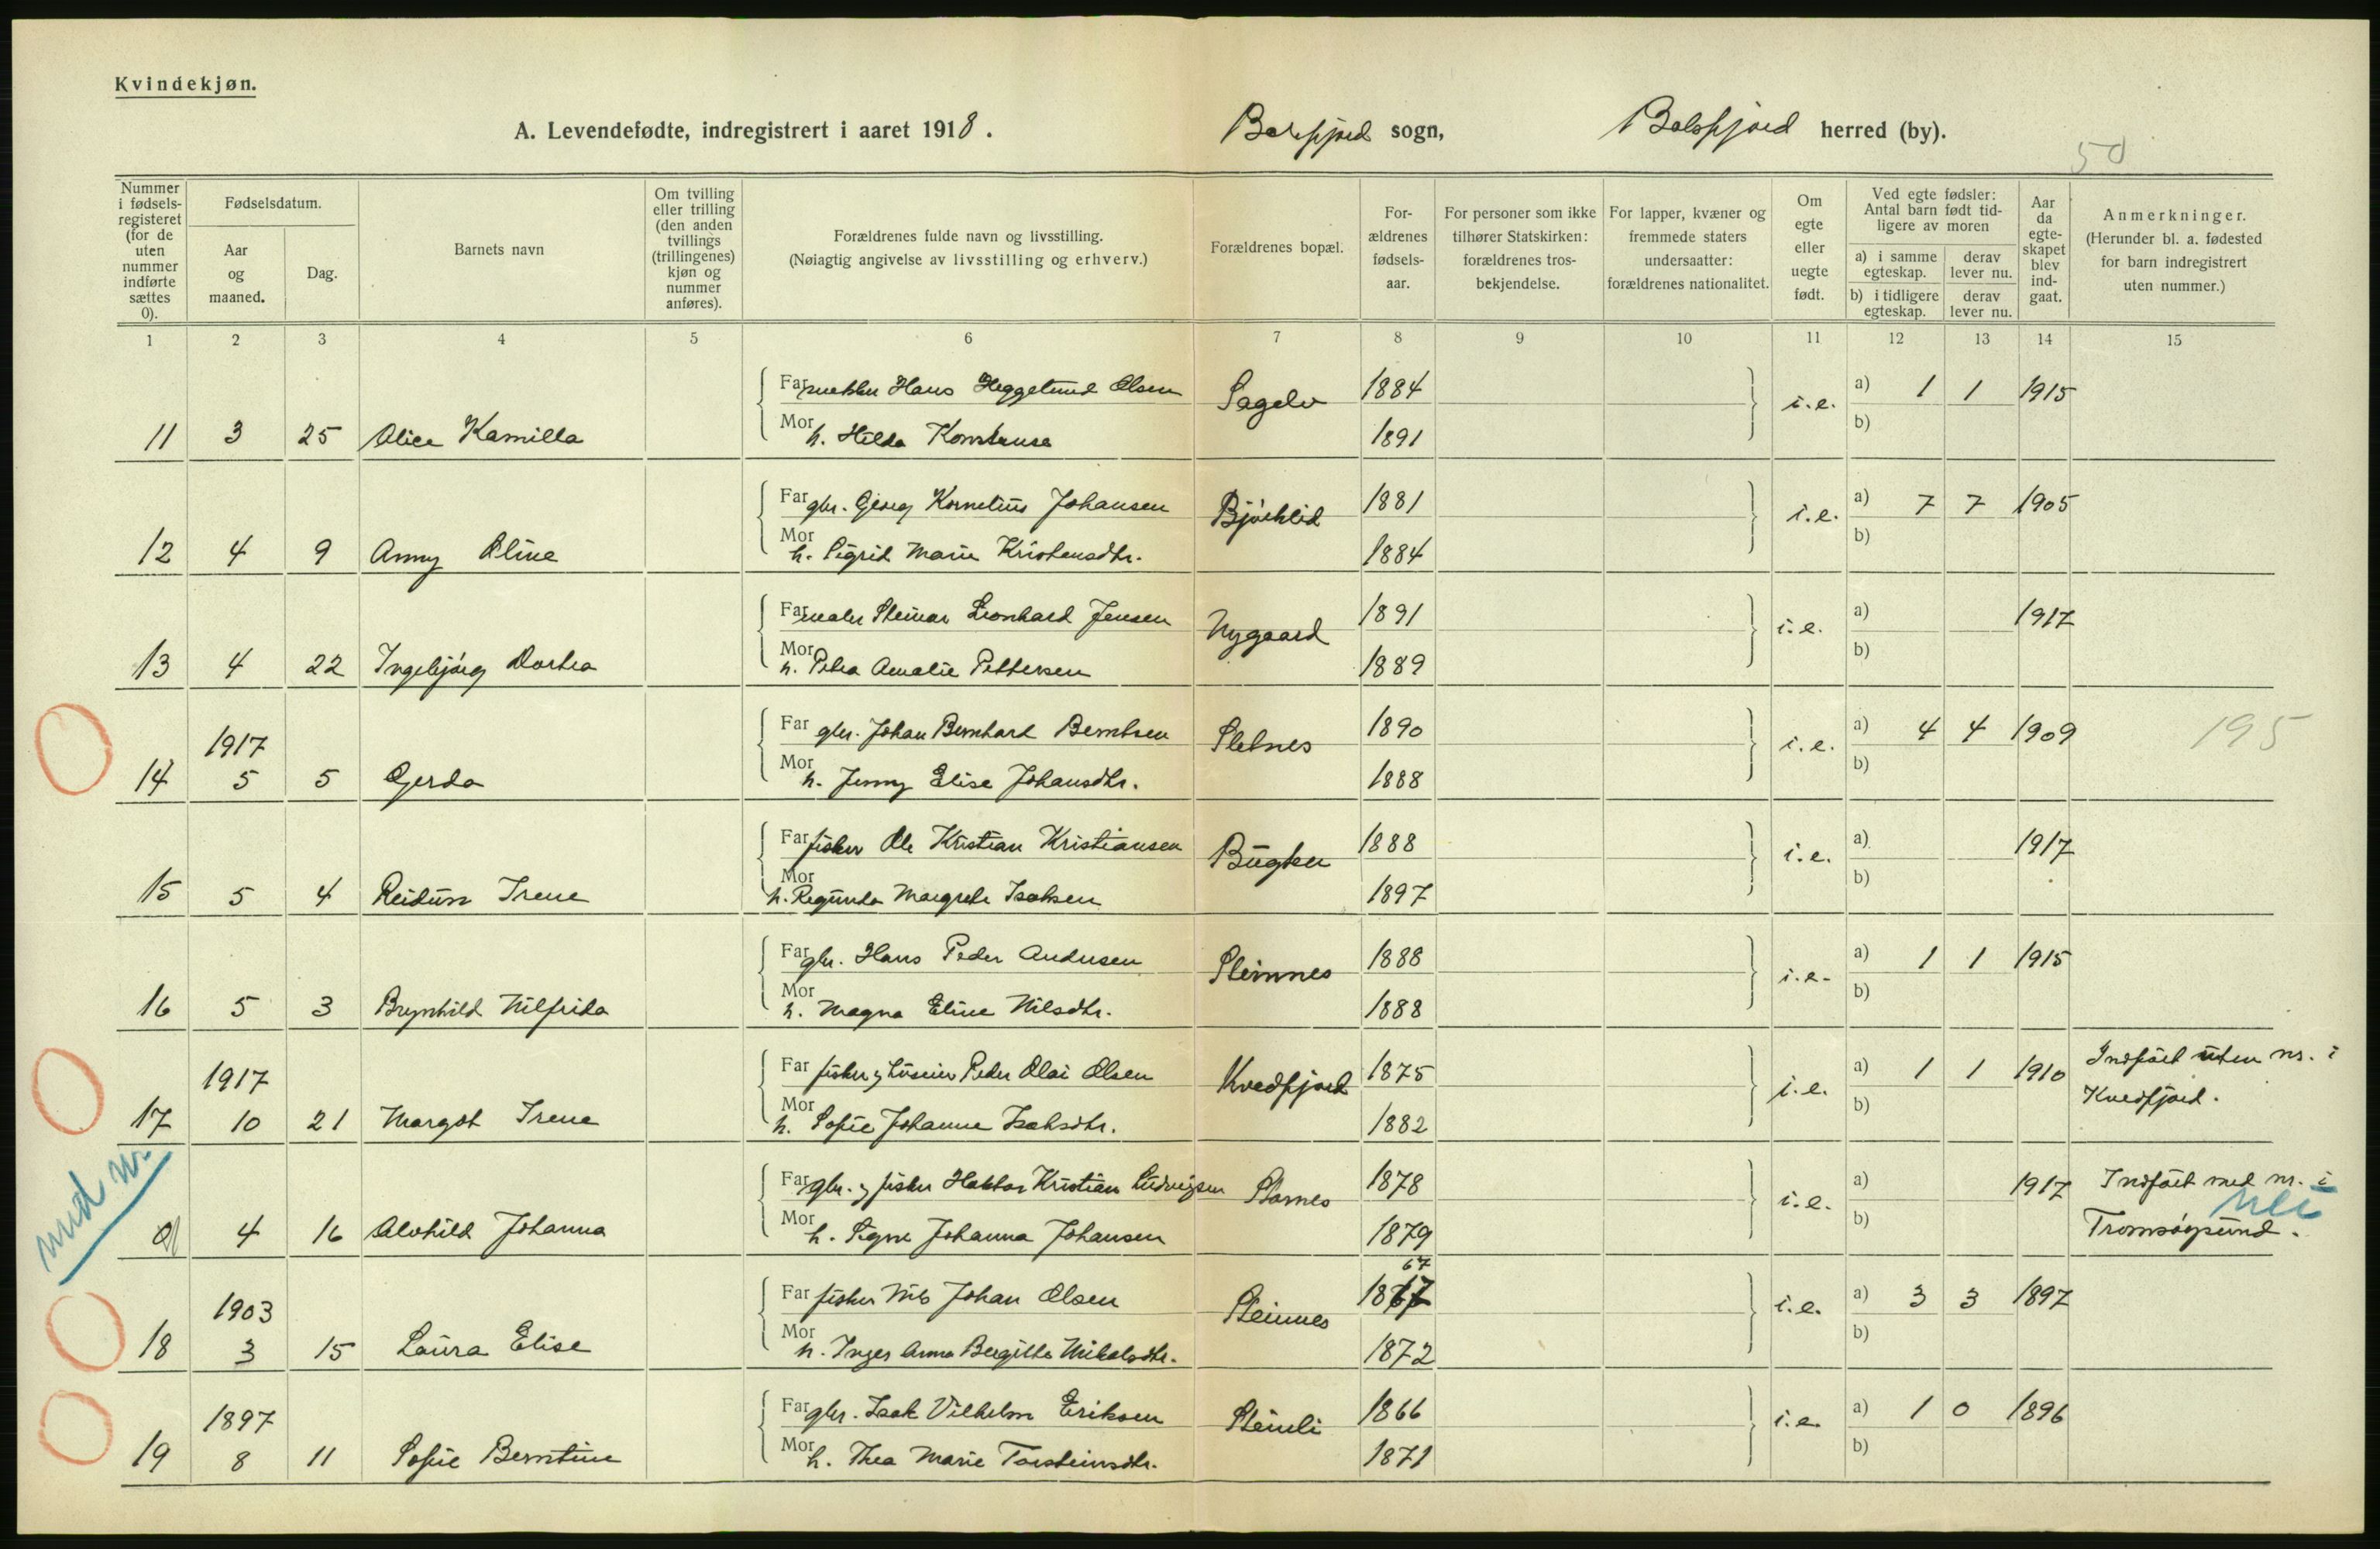 Kvindekjøn.
A. Levendefødte, indregistrert i aaret 1918. Balsfjord sogn, Balsfjord herred (by).
50
Nummer i fødsels-registeret (for de uten nummer indførte sættes 0).
Fødselsdatum.
Aar og maaned.
Dag.
Barnets navn
Om tvilling eller trilling (den anden tvillings (trillingenes) kjøn og nummer anføres).
Forældrenes fulde navn og livsstilling.
(Nøiagtig angivelse av livsstilling og erhverv.)
Forældrenes bopæl.
For-ældrenes fødsels-aar.
For personer som ikke tilhører Statskirken: forældrenes tros-bekjendelse.
For lapper, kvæner og fremmede staters undersaatter: forældrenes nationalitet.
Om egte eller uegte født.
Ved egte fødsler: Antal barn født tid-ligere av moren
a) i samme egteskap.
derav lever nu.
b) i tidligere egteskap.
derav lever nu.
Aar da egte-skapet blev ind-gaat.
Anmerkninger.
(Herunder bl. a. fødested for barn indregistrert uten nummer.)
1 2 3 4 5 6 7 8 9 10 11 12 13 14 15
Far Hans Heggelund Olsen Sagelv 1884 i.e. a) 1 1 1915
11 3 25 Alice Kamilla Mor h. Hilda Konstanse 1891 b)
Far gbr. Georg Kornelius Johansen 1881 i.e. a) 7 7 1905
12 4 9 Anny Oline Mor h. Sigrid Marie Kristensdtr. 1884 b)
Far maler Steinar Leonhard Jensen Nygaard 1891 i.e. a) 1917
13 4 22 Ingebjørg Dortea Mor h. Petra Amalie Pettersen 1889 b)
1917 Far gbr. Johan Bernhard Berntsen Sletnes 1890 i.e. a) 4 4 1909 195
14 5 5 Gerda Mor h. Jenny Elise Johansdtr. 1888 b)
Far fisker Ole Kristian Kristiansen Bugten 1888 i.e. a) 1917
15 5 4 Reidun Irene Mor h. Regunda Margrete Isaksen 1897 b)
Far gbr. Hans Peder Andersen Steinnes 1888 i.e. a) 1 1 1915
16 5 3 Brynhild Nilfrida Mor h. Magna Eline Nilsdtr. 1888 b)
1917 Far fisker og Peder Olai Olsen Kvedfjord 1875 i.e. a) 1 1 1910 Indført uten nr. i
17 10 21 Margot Irene Mor h. Sofie Johanne Isaksdtr. 1882 b) Kvedfjord.
med nr.
Far gbr. og fisker Kristian Ludvigsen Stornes 1878 i.e. a) 1917 Indført med nr. i
nei
0 4 16 Alvhild Johanna Mor h. Signe Johanna Johansen 1879 b) Tromsøysund.
67
1903 Far fisker Nils Johan Olsen Steinnes 1867 i.e. a) 3 3 1897
18 3 15 Laura Elise Mor h. Inger Anna Bergitte Nikolsdtr. 1872 b)
1897 Far gbr. Isak Vilhelm Eriksen Steinli 1866 i.e. a) 1 0 1896
19 8 11 Sofie Berntine Mor h. Thea Marie Torsteinsdtr. 1871 b)